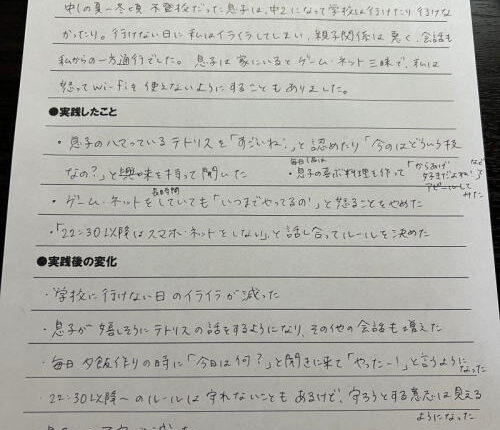 中1の夏〜冬頃 不登校だった息子は、中2になって学校は行けたり行けな
かったり。行けない日に私はイライラしてしまい、親子関係は悪く、会話も
私からの一方通行でした。息子は家にいるとゲーム・ネット三昧で、私は
怒ってWi-fiを使えないようにすることもありました。
●実践したこと
・息子のハマっているテトリスを「すごいね!」と認めたり「今のはどういう技
なの?」と興味を持って聞いた
・毎日1品は息子の喜ぶ料理を作って「からあげ好きだよね!」などアピールしてみた
・ゲーム・ネットを長時間していても「いつまでやってるの!」と怒ることをやめた
・「22:30以降はスマホ・ネットをしない」と話し合ってルールを決めた
●実践後の変化
・学校に行けない日のイライラが減った
・息子が嬉しそうにテトリスの話をするようになり、その他の会話も増えた
・毎日夕飯作りの時に「今日は何?」と聞きに来て「やったー!」と言うようになった
・22:30以降〜のルールは守れないこともあるけど、守ろうとする意志は見える
ようになった